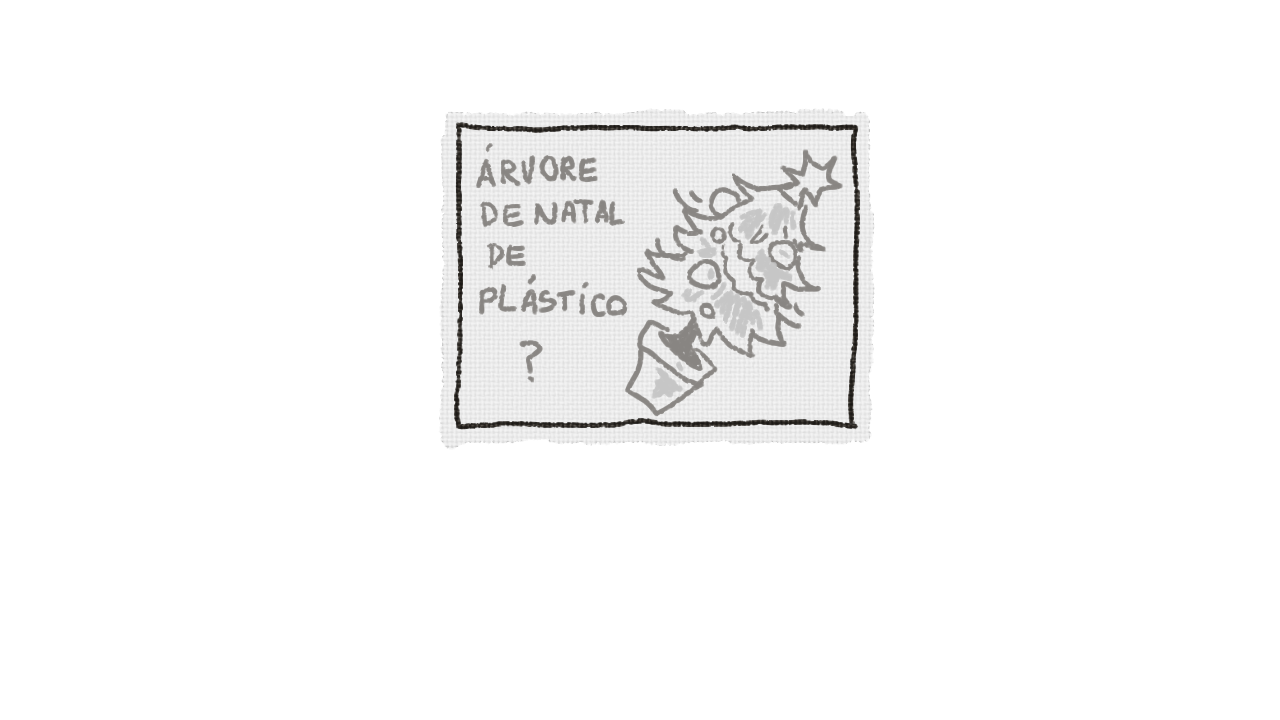 ÁRVORE
DE NATAL
DE
PLÁSTICO
?